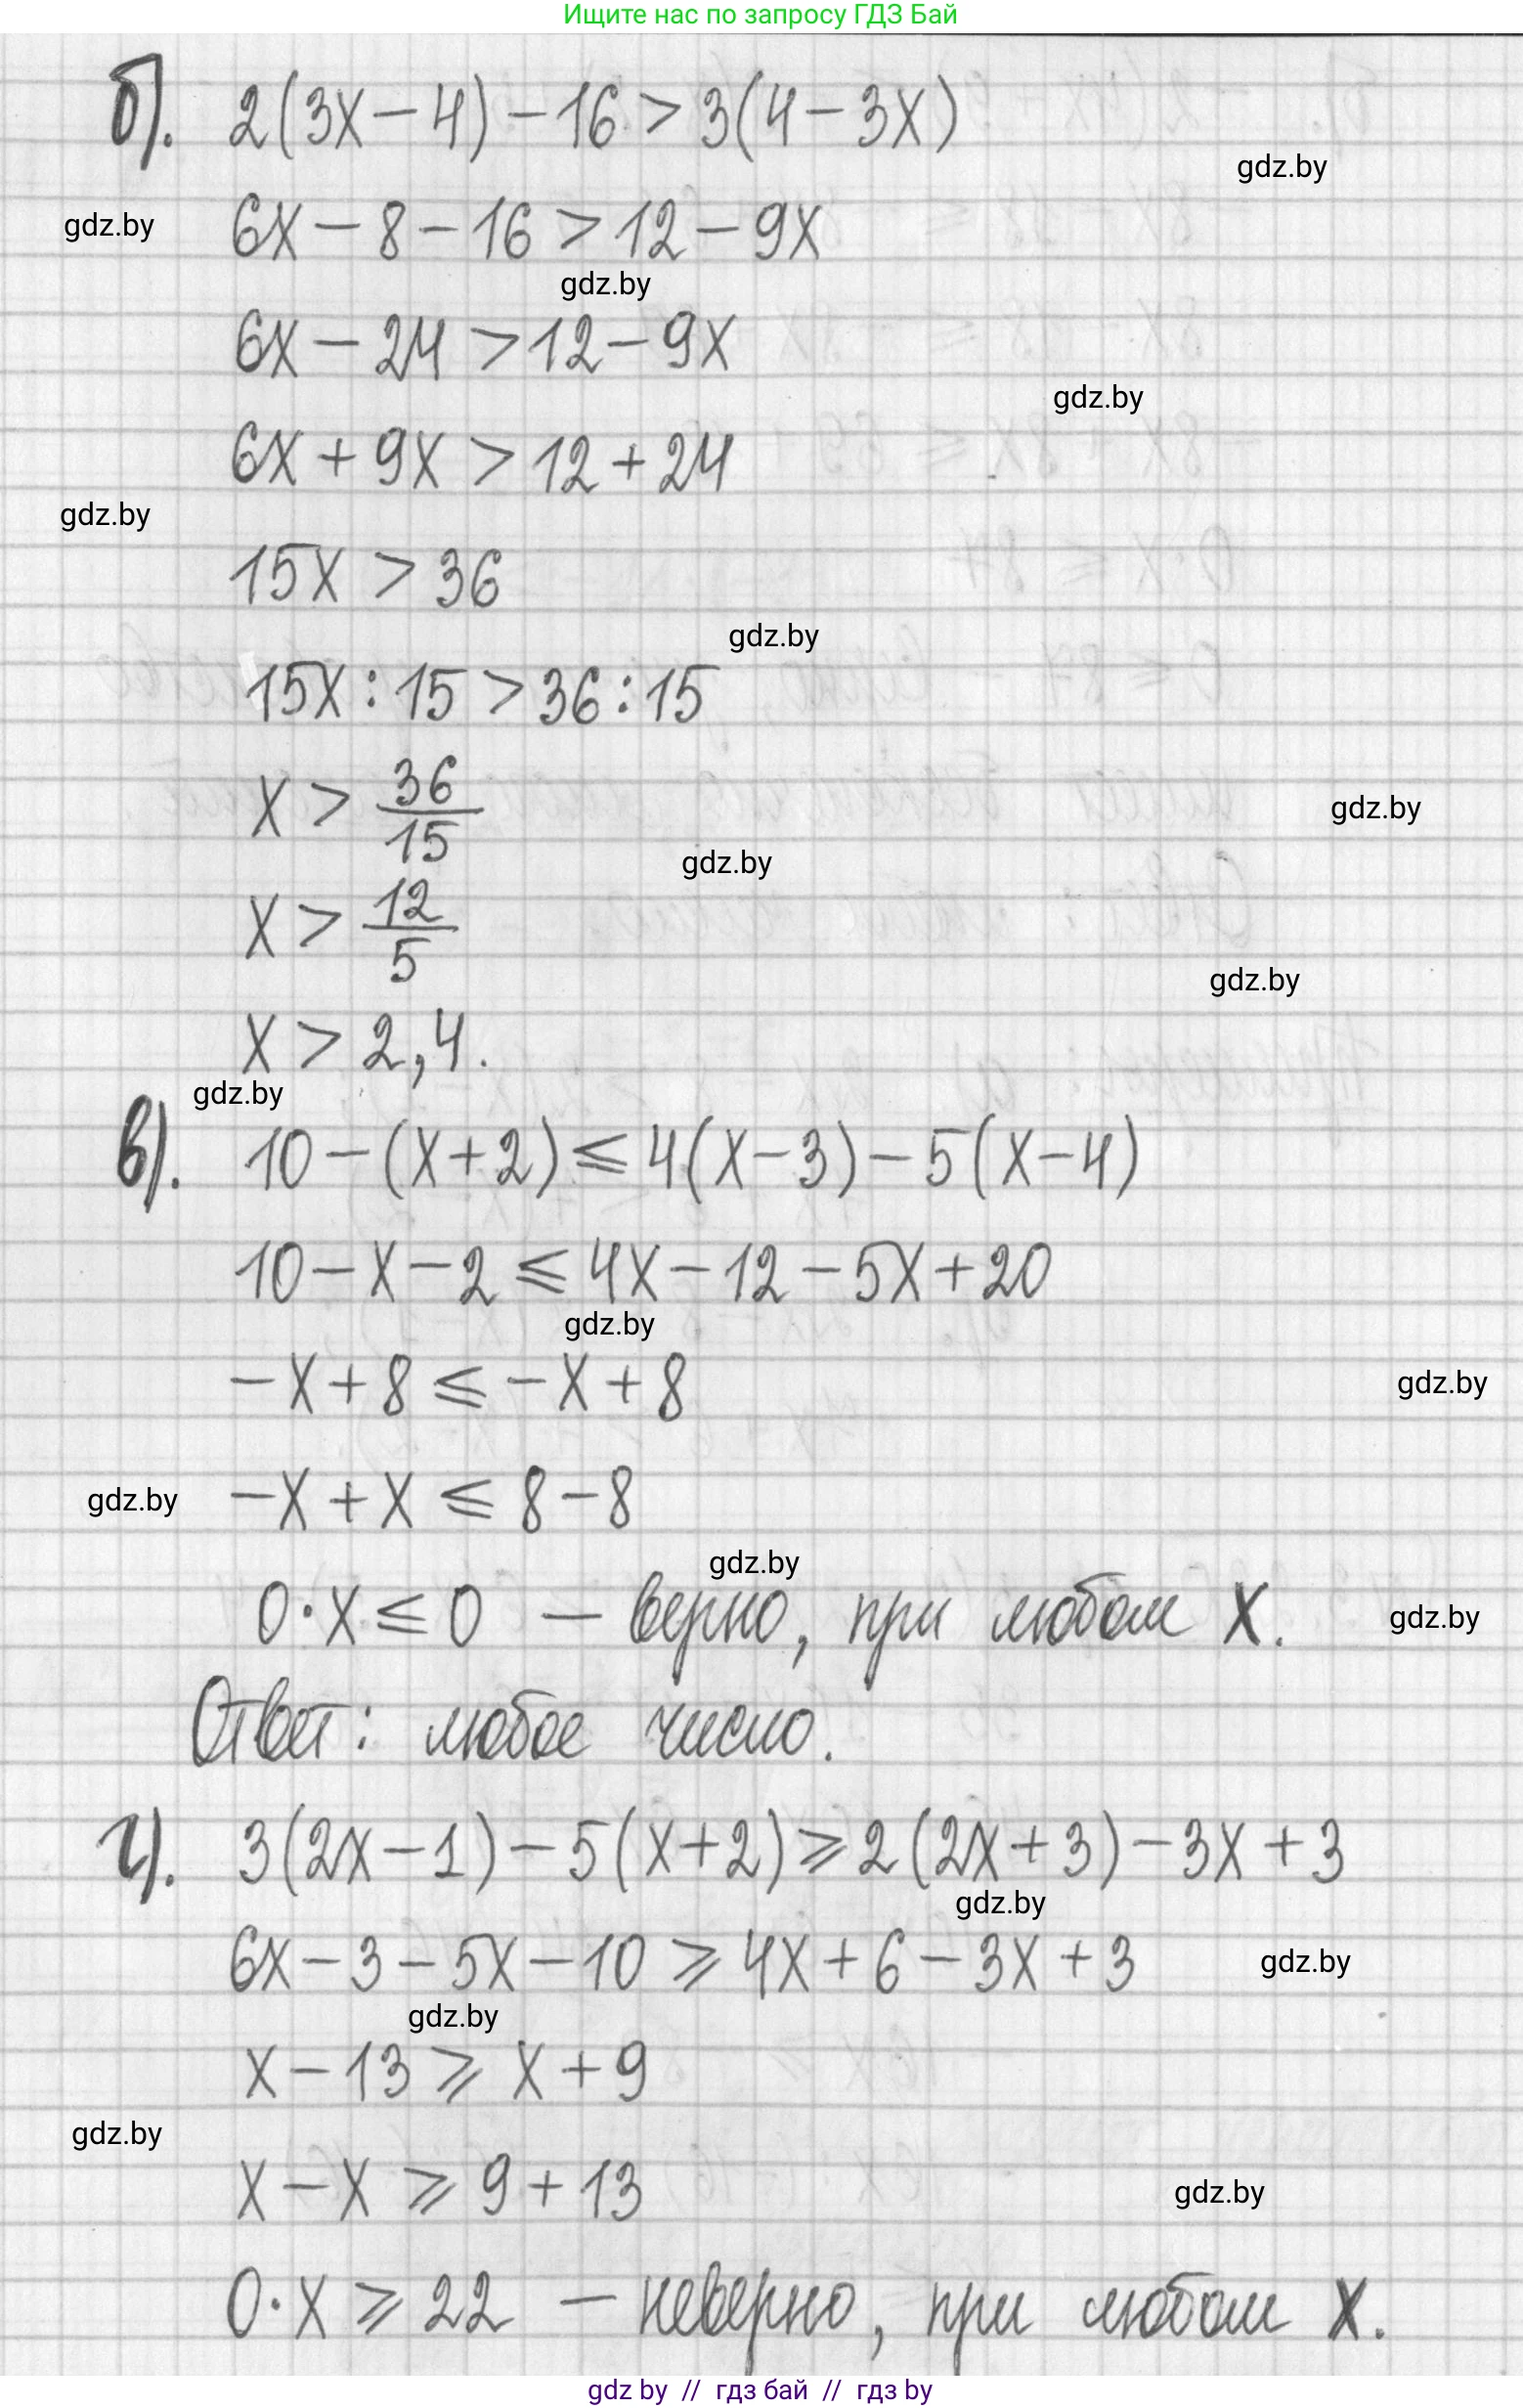 Ищите нас по запросу ГДЗ Бай
б). 2(3x-4)-16>3(4-3x)
gdz.by
gdz.by 6x-8-16>12-9x
gdz.by
6x-24>12-9x
gdz.by
6x+9x>12+24
gdz.by
15x>36
gdz.by
15x:15>36:15
x>36/15
gdz.by
gdz.by
x>12/5
gdz.by
x>2,4.
gdz.by
в). 10-(x+2)≤4(x-3)-5(x-4)
10-x-2≤4x-12-5x+20
gdz.by
-x+8≤-x+8
gdz.by
gdz.by -x+x≤8-8
gdz.by
0·x≤0 — верно, при любом x.
gdz.by
Ответ: любое число.
г). 3(2x-1)-5(x+2)≥2(2x+3)-3x+3
gdz.by
6x-3-5x-10≥4x+6-3x+3
gdz.by
gdz.by
x-13≥x+9
gdz.by
x-x≥9+13
gdz.by
0·x≥22 — неверно, при любом x.
gdz by // гдз бай // гдз by